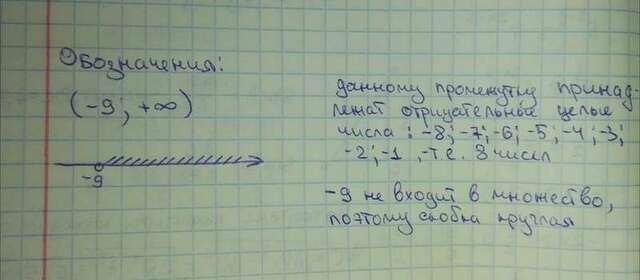 Обозначения:
(-9; +∞)
-9
данному промежутку принад-
лежат отрицательные целые
числа: -8; -7; -6; -5; -4; -3;
-2; -1, -т.е. 8 чисел
-9 не входит в множество,
поэтому скобка круглая